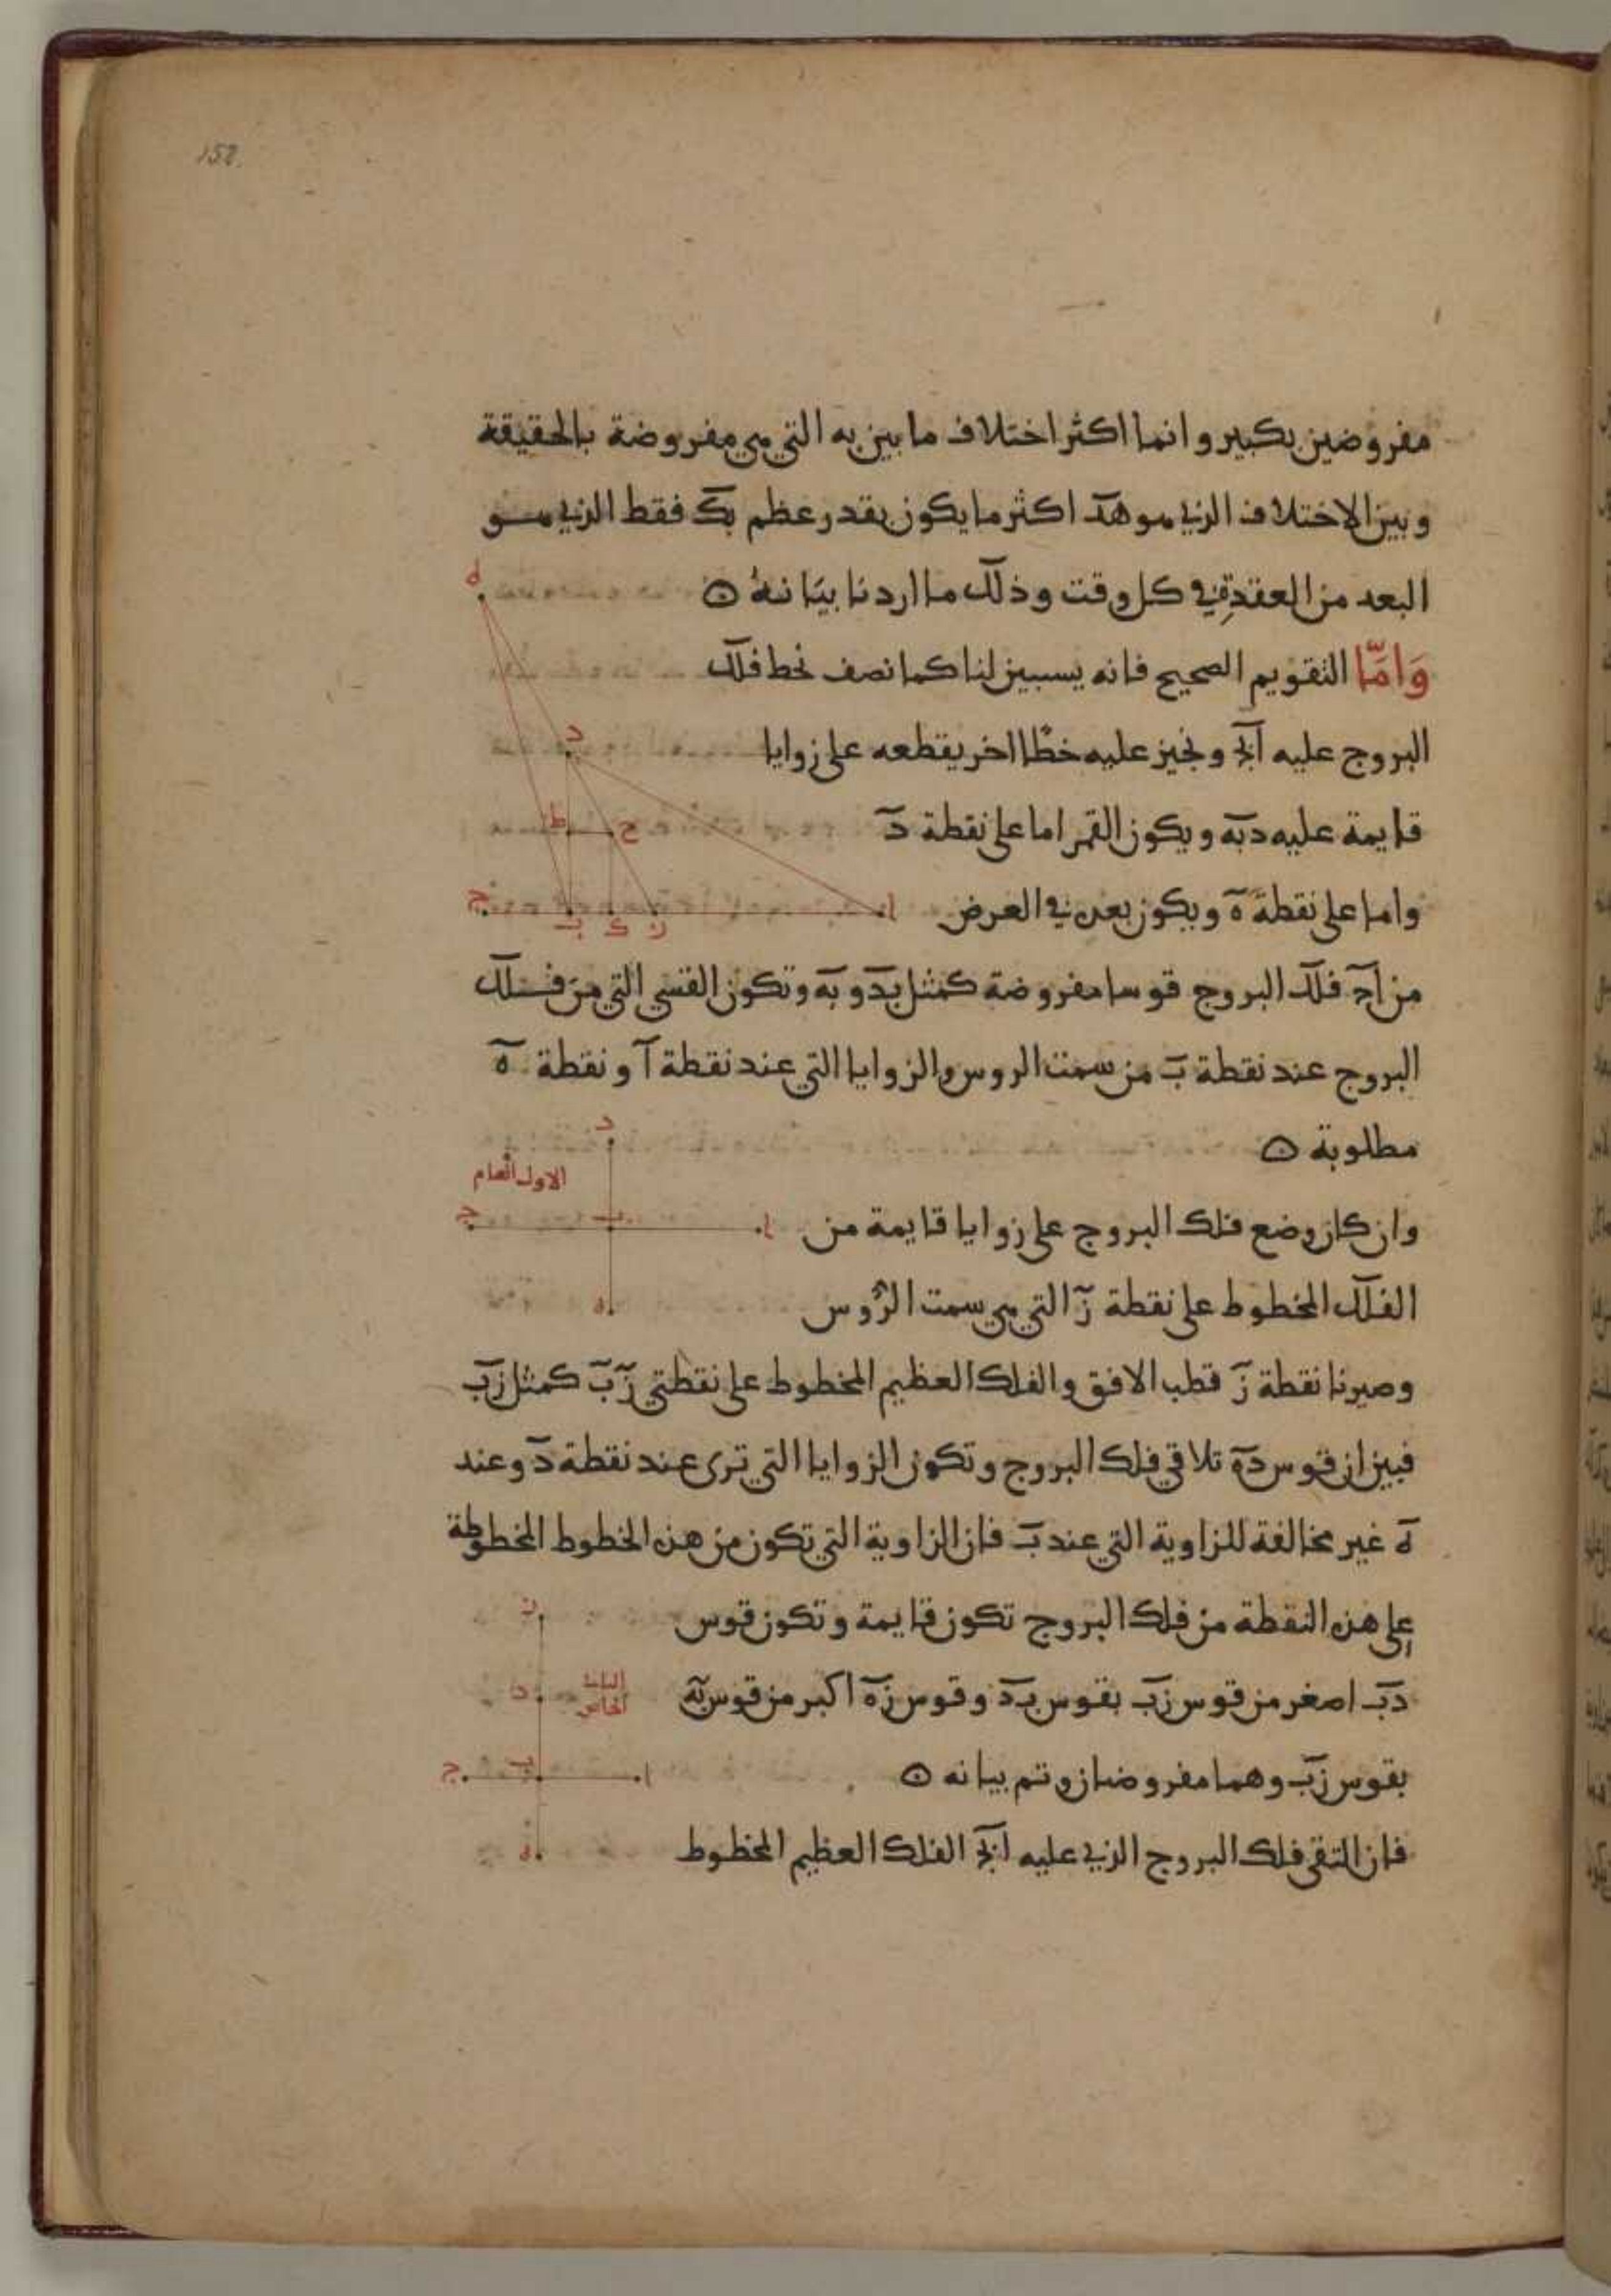 152
مفروضين بكبير وانما اكثر اختلاف ما بين به التي هي مفروضة بالحقيقة
وبين الاختلاف الذي هو هد اكثر ما يكون بقدر عظم بك فقط الذي هو
البعد من العقدة في كل وقت وذلك ما اردنا بيانه
وَامَّا التقويم الصحيح فانه يستبين لنا كما نصف نخط فلك
البروج عليه ابج ونجيز عليه خطًا اخر يقطعه على زوايا
قايمة عليه دبه ويكون القمر اما على نقطة د
واما على نقطة ه ويكون بعده في العرض
من اج فلك البروج قوسا مفروضة كمثل بد و به وتكون القسي التي من فلك
البروج عند نقطة ب من سمت الروس والزوايا التي عند نقطة ا و نقطة ه
مطلوبة
وان كان وضع فلك البروج على زوايا قايمة من
الفلك المخطوط على نقطة ز التي هي سمت الرؤس
وصيرنا نقطة ز قطب الافق والفلك العظيم المخطوط على نقطتي ز ب كمثل زب
فبين ان قوس ده تلاقي فلك البروج وتكون الزوايا التي ترى عند نقطة د وعند
ه غير مخالفة للزاوية التي عند ب فان الزاوية التي تكون من هذه الخطوط المخطوطة
على هذه النقطة من فلك البروج تكون قايمة وتكون قوس
دب اصغر من قوس زب بقوس بد وقوس زه اكبر من قوس به
بقوس زب وهما مفروضان وتم بيانه
فان التقى فلك البروج الذي عليه ابج الفلك العظيم المخطوط
ه
د
ط ح
ج ب ك ز ا
د
الاول العام
ج ب ا
ه
ز
د
الخاص
ج ب ا
ه